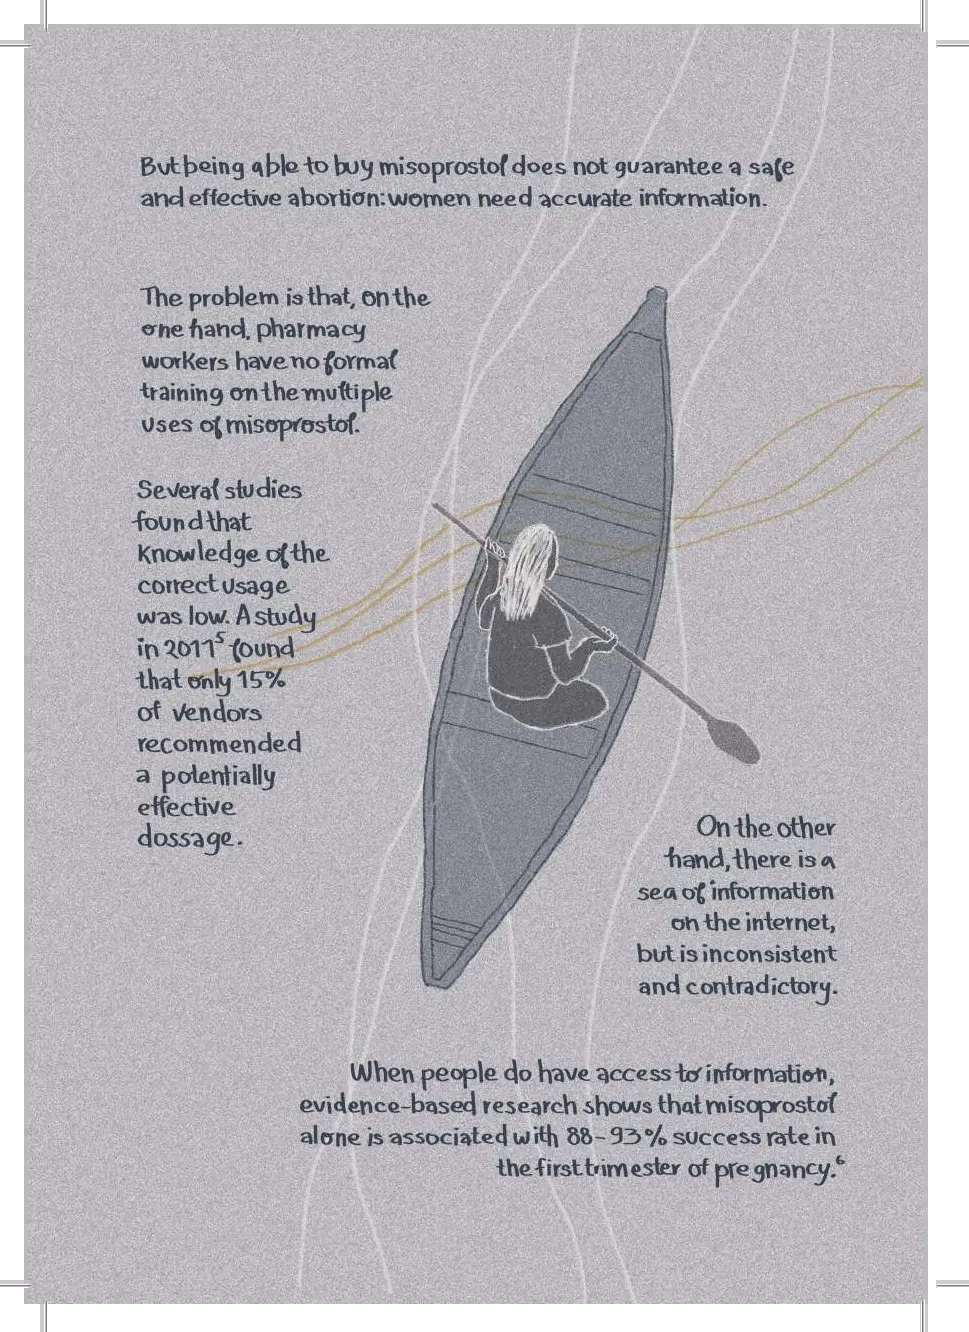 But being able to buy misoprostol does not guarantee a safe
and effective abortion: women need accurate information.
The problem is that, on the
one hand, pharmacy
workers have no formal
training on the multiple
uses of misoprostol.
Several studies
found that
knowledge of the
correct usage
was low. A study
in 2011⁵ found
that only 15%
of vendors
recommended
a potentially
effective
dossage.
On the other
hand, there is a
sea of information
on the internet,
but is inconsistent
and contradictory.
When people do have access to information,
evidence-based research shows that misoprostol
alone is associated with 88-93% success rate in
the first trimester of pregnancy.⁶